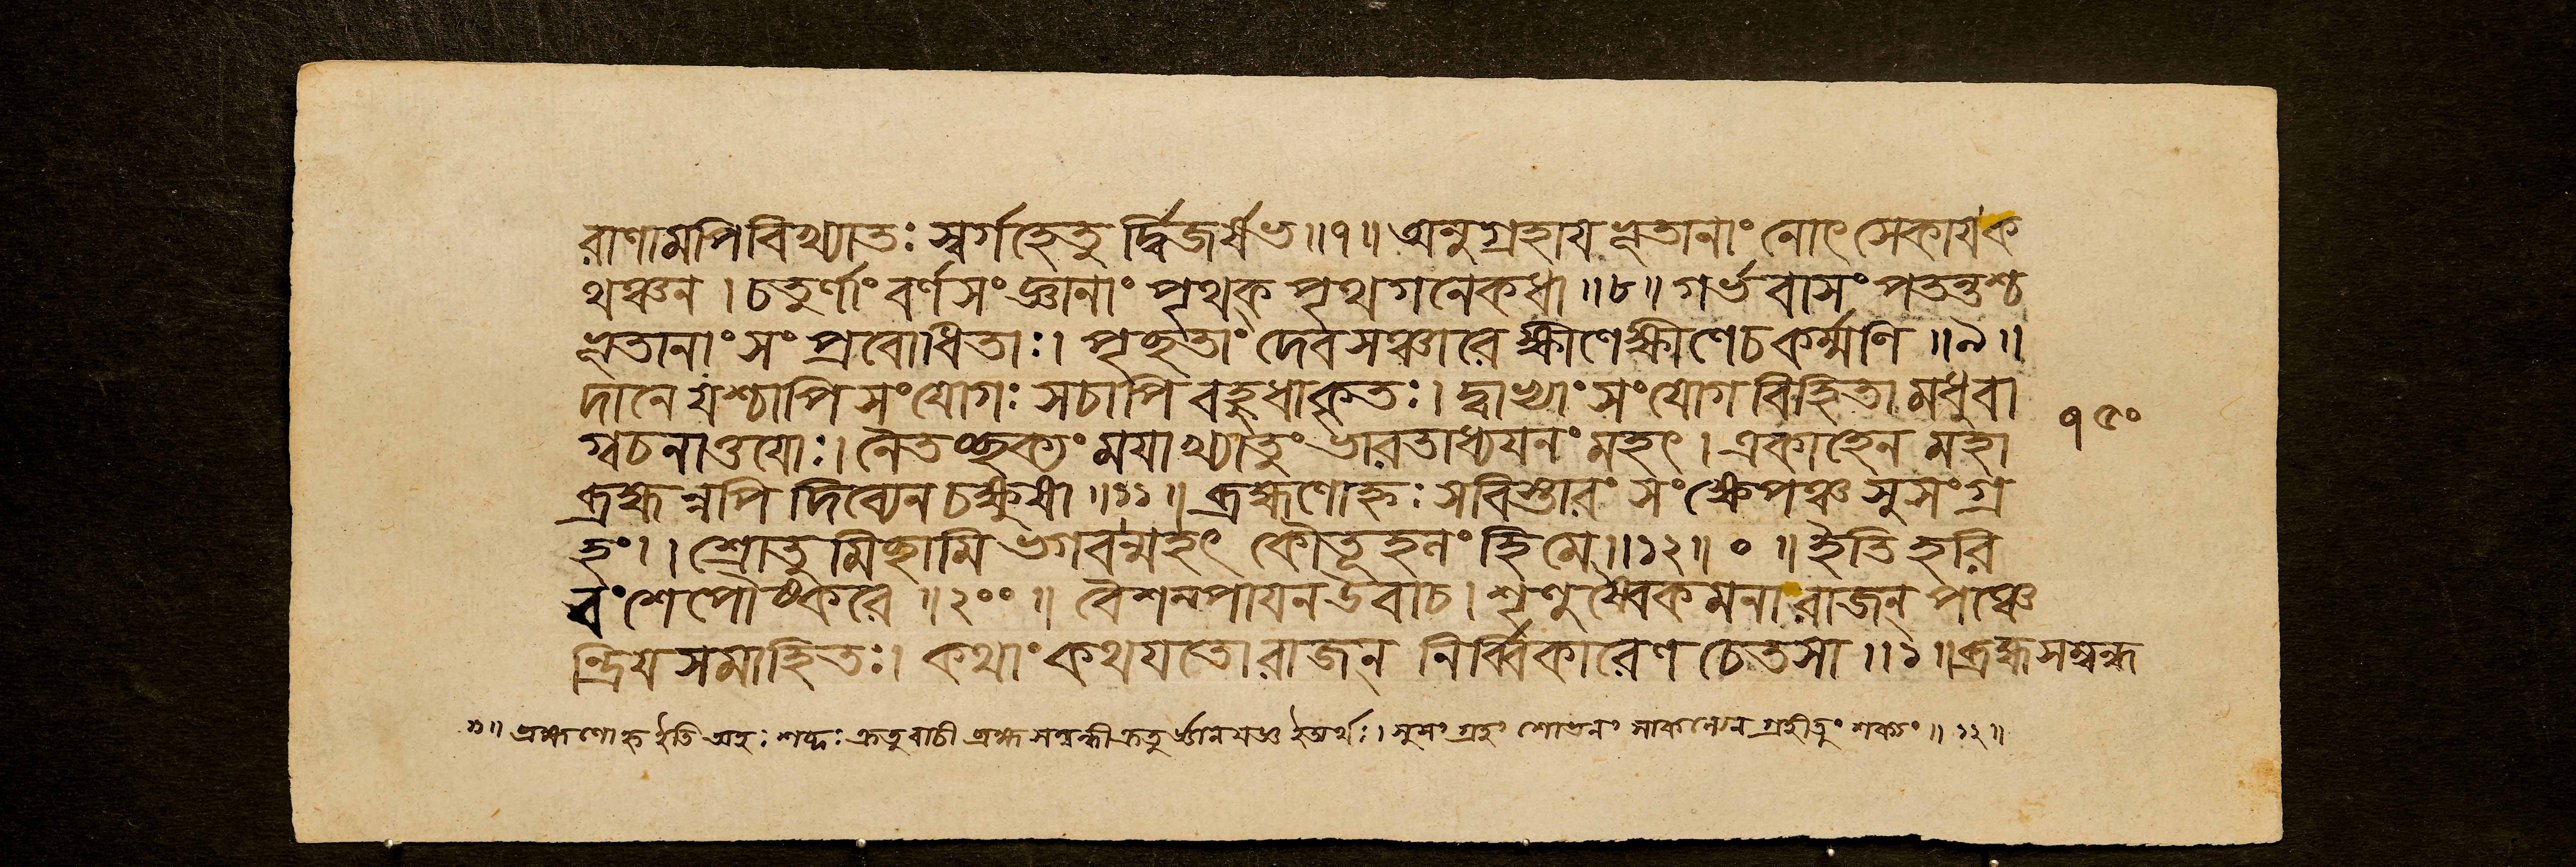 ৰাণামপিবিখ্যাতঃ স্বর্গহেতু র্দ্বিজর্ষভ॥৭॥ অনুগ্রহায ভূতানাং নোৎ সেকাযক
থঞ্চন । চতুর্ণাং বর্ণসংজ্ঞানাং পৃথক্ পৃথগনেকধা ॥৮॥ গর্ভবাসং পতন্তশ্চ
ভূতানাং সং প্রবোধিতাঃ। পৃচ্ছতাং দেবসঞ্চাৰে ক্ষীণেক্ষীণেচকর্ম্মণি ॥৯॥
দানে যশ্চাপি সংযোগঃ সচাপি বহুধাকৃতঃ। দ্বাভ্যাং সংযোগ বিহিতা মধুবা
গ্বচনাত্তযোঃ। নৈতচ্ছক্যং মযাখ্যাতুং ভাৰতাধ্যযনং মহৎ । একাহেন মহা
ব্রহ্মন্নপি দিব্যেন চক্ষুষা ॥১১॥ ব্রহ্মণোহ্নঃ সবিস্তাৰং সংক্ষেপঞ্চ সুসংগ্র
হং।। শ্রোতুমিচ্ছামি ভগবন্মহৎ কৌতূহলং হি মে॥১২॥ ० ॥ ইতি হৰি
বংশে পৌষ্কৰে ॥২००॥ বৈশম্পাযনউবাচ । শৃণুষ্বৈকমনা ৰাজন্ পঞ্চে
ন্দ্রিয সমাহিতঃ। কথাং কথযতো ৰাজন্ নির্ব্বিকাৰেণ চেতসা ॥১॥ ব্রহ্মসম্বন্ধ
১৫०
ব্রহ্মণোহ্ন ইতি অহঃ শব্দঃ ক্রতুবাচী ব্রহ্মসম্বন্ধী ক্রতু র্জ্ঞানযজ্ঞ ইঅর্থঃ। সুসং গ্রহং শোভনং সাকল্যেন গ্রহীতুং শক্যং ॥ ১২॥